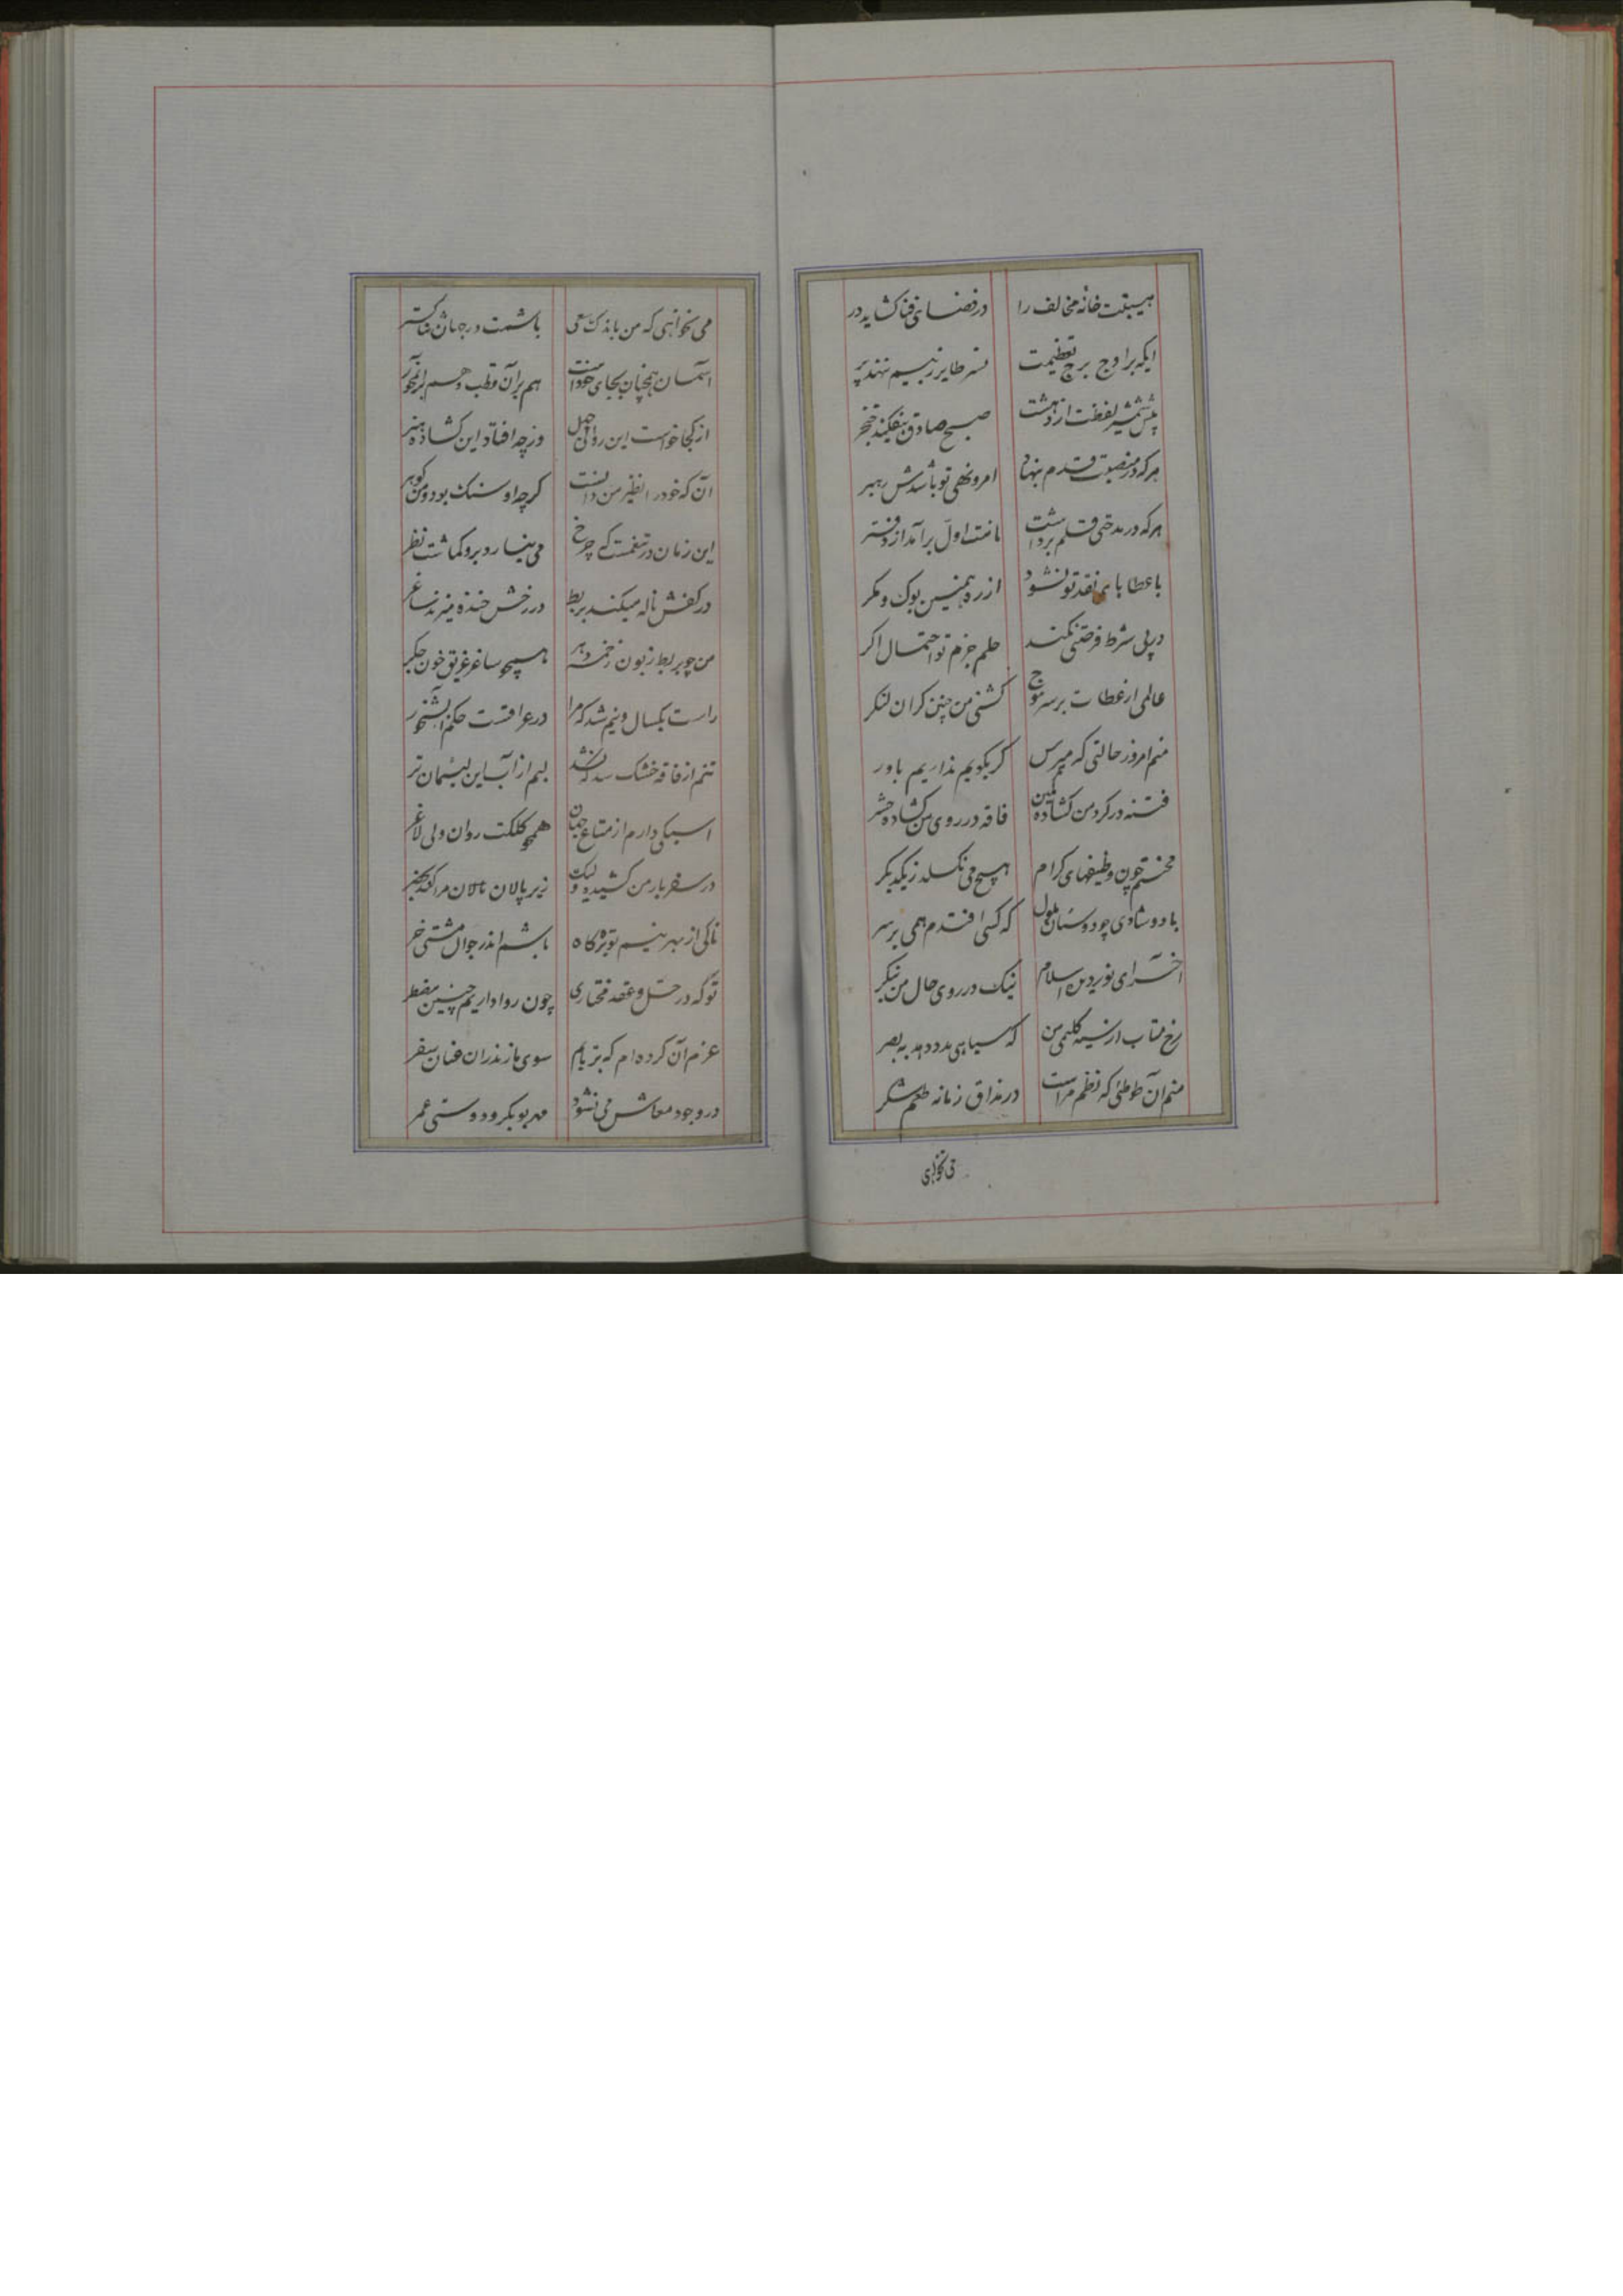 هیبتت خانه مخالف را در فضای فنا کشاید در
ایکه بر اوج برج تعظیمت نسر طایر ز بیم ننهد پر
پیش شمشیر لفظت از دهشت صبح صادق بیفکند خنجر
هرکه در منصبت قدم بنهاد امر و نهی تو باشدش رهبر
هرکه در مدحتی قلم برداشت نامت اول برآمد از دفتر
با عطابای نقد تو نشود از ره همین بوک و مکر
در پی شرط فرصتی نکند حلم جزم تو احتمال اکر
عالمی از عطات بر سر موج کشتی من چنین کران لنکر
منم امروز حالتی که مپرس کر بکویم نداریم باور
فتنه در کرد من کشاده کمین فاقه در روی من کشاده حشر
محنتم چون وظیفهای کرام هیچ می نکسلد ز یکدیکر
با دو شادی چو دوستان ملول که کسی افتدم همی بر سر
آخر ای نور دین اسلام نیک در روی حال من بنکر
رخ متاب از سیه کلیمی من که سیاهی مدد دهد به بصر
منم آن طوطئی که نظم مراست در مذاق زمانه طعم شکر
می نخواهی
می نخواهی که من باندک سعی باشمت در جهان ثنا کستر
آسمان همچنان بجای خود است هم بر آن قطب و هم بر آن محور
از کجا خواست این رواج جهل وز چه افتاد این کشاد هنر
آن که خود را نظیر من دانست کرچه او سنک بود و من کوهر
این زمان در تنعمست که چرخ می نیارد برو کماشت نظر
در کفش ناله میکند بربط در رخش خنده میزند ساغر
من چو بربط زبون زخمه دهر همچو ساغر غریق خون جکر
راست یکسال و نیم شد که مرا در عراقست حکم آبشخور
تنم از فاقه خشک شد که نشد لبم از آب این لئیمان تر
اسبکی دارم از متاع جهان همچو کلکت روان ولی لاغر
در سفر بار من کشیده ولیک زیر پالان نالان مرا کند بحضر
تا کی از بهر نیم توبره کاه باشم اندر جوال مشتی خر
تو که در حل و عقد مختاری چون روا داریم چنین مضطر
عزم آن کرده ام که بر تابم سوی مازندران عنان سفر
در وجود معاش می نشود مهر بوبکر و دوستی عمر